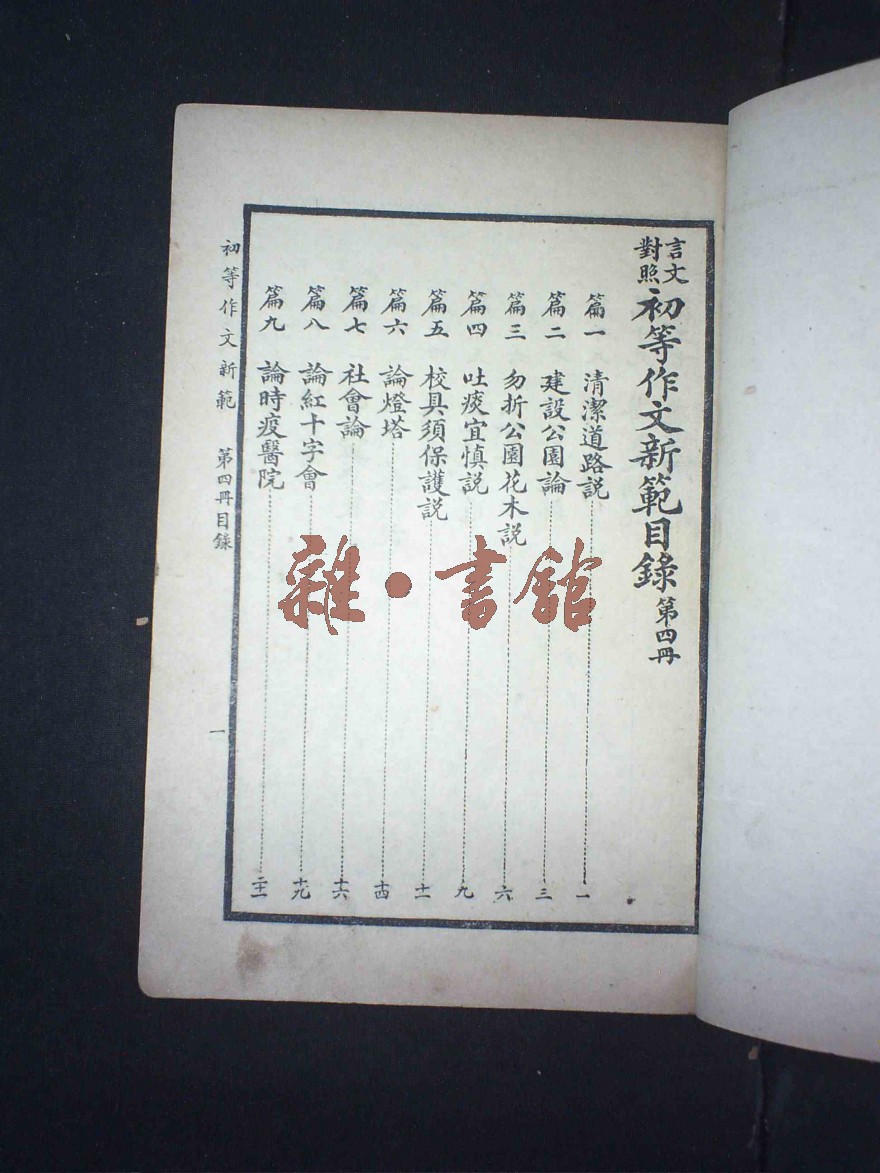 言文對照初等作文新範目錄第四冊
篇一 清潔道路説 一
篇二 建設公園論 三
篇三 勿折公園花木説 六
篇四 吐痰宜慎説 九
篇五 校具須保護説 十一
篇六 論燈塔 十四
篇七 社會論 十六
篇八 論紅十字會 十九
篇九 論時疫醫院 二十一
初等作文新範 第四冊目錄 一
雜·書館